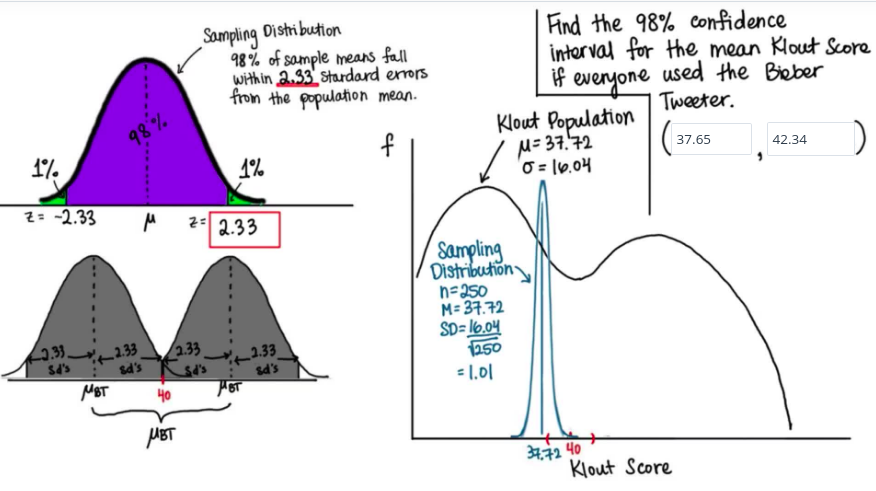 Sampling Distribution
98% of sample means fall
within 2.33 standard errors
from the population mean.
98%
1%
1%
z = -2.33
μ
z = 2.33
2.33
2.33
2.33
2.33
sd's
sd's
sd's
sd's
μBT
40
μBT
μBT
Find the 98% confidence
interval for the mean Klout Score
if everyone used the Bieber
Tweeter.
( 37.65 , 42.34 )
f
Klout Population
μ = 37.72
σ = 16.04
Sampling
Distribution
n=250
M=37.72
SD=16.04
√250
=1.01
37.72
40
Klout Score